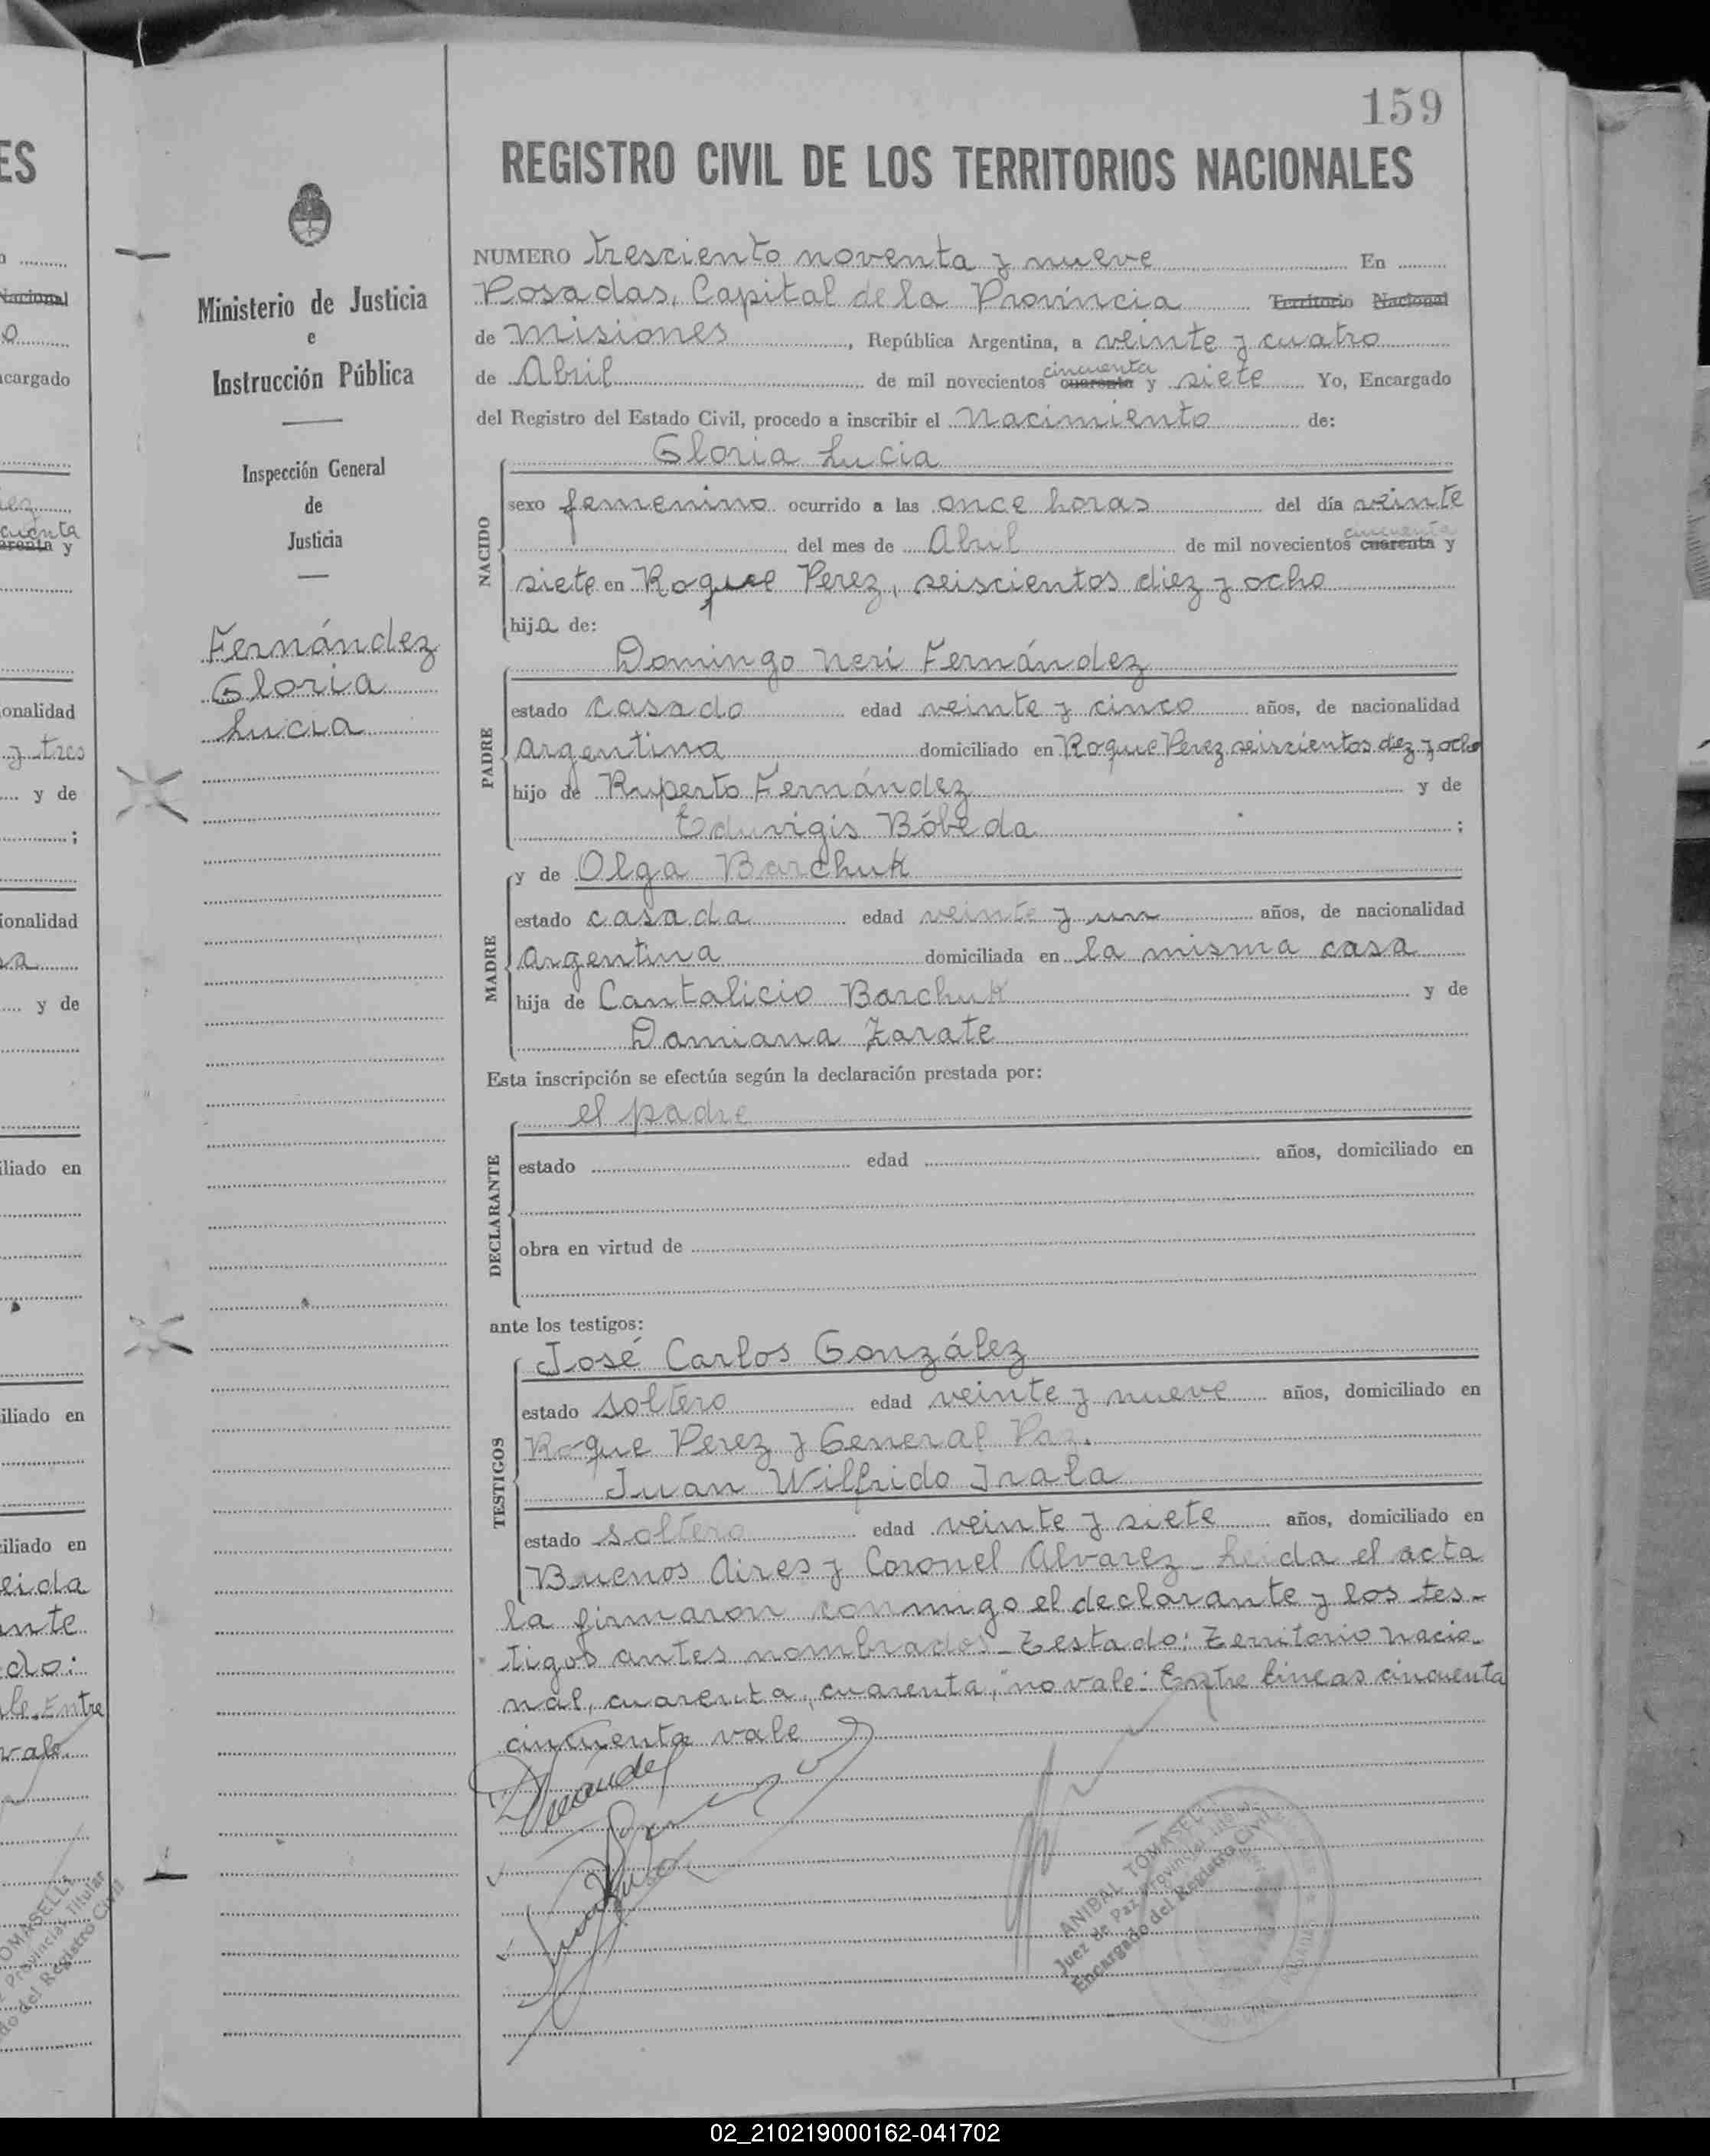 159
REGISTRO CIVIL DE LOS TERRITORIOS NACIONALES
Ministerio de Justicia
e
Instrucción Pública
Inspección General
de
Justicia
Fernández
Gloria
Lucia
NUMERO tresciento noventa y nueve En
Posadas, Capital de la Provincia Territorio Nacional
de Misiones, República Argentina, a veinte y cuatro
de Abril de mil novecientos cuarenta cincuenta y siete Yo, Encargado
del Registro del Estado Civil, procedo a inscribir el Nacimiento de:
Gloria Lucia
NACIDO
sexo femenino ocurrido a las once horas del día veinte
del mes de Abril de mil novecientos cuarenta cincuenta y
siete en Roque Perez, seiscientos diez y ocho
hija de:
Domingo Neri Fernández
PADRE
estado casado edad veinte y cinco años, de nacionalidad
argentina domiciliado en Roque Perez seiscientos diez y ocho
hijo de Ruperto Fernández y de
Eduvigis Bóbeda ;
MADRE
y de Olga Barchuk
estado casada edad veinte y un años, de nacionalidad
argentina domiciliada en la misma casa
hija de Cantalicio Barchuk y de
Damiana Zarate
Esta inscripción se efectúa según la declaración prestada por:
el padre
DECLARANTE
estado edad años, domiciliado en
obra en virtud de
ante los testigos:
José Carlos González
TESTIGOS
estado soltero edad veinte y nueve años, domiciliado en
Roque Perez y General Paz.
Juan Wilfrido Irala
estado soltero edad veinte y siete años, domiciliado en
Buenos Aires y Coronel Alvarez - Leida el acta
la firmaron conmigo el declarante y los tes-
tigos antes nombrados - Testado: Territorio Nacio-
nal, cuarenta, cuarenta, "no vale: Entre lineas cincuenta
cincuenta vale
ANIBAL TOMASELLI
Juez de Paz Provincial Titular
Encargado del Registro Civil
02_210219000162-041702